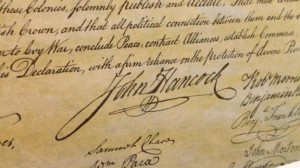 these Colonies, solemnly publish and declare, That
ish Crown, and that all political connection between them and the
to levy War, conclude Peace, contract Alliances, establish Commerce
his Declaration, with a firm reliance on the protection of divine
John Hancock
Robt Morris
Benjamin
Benj. Franklin
John Morton
Samuel Chase
Wm. Paca